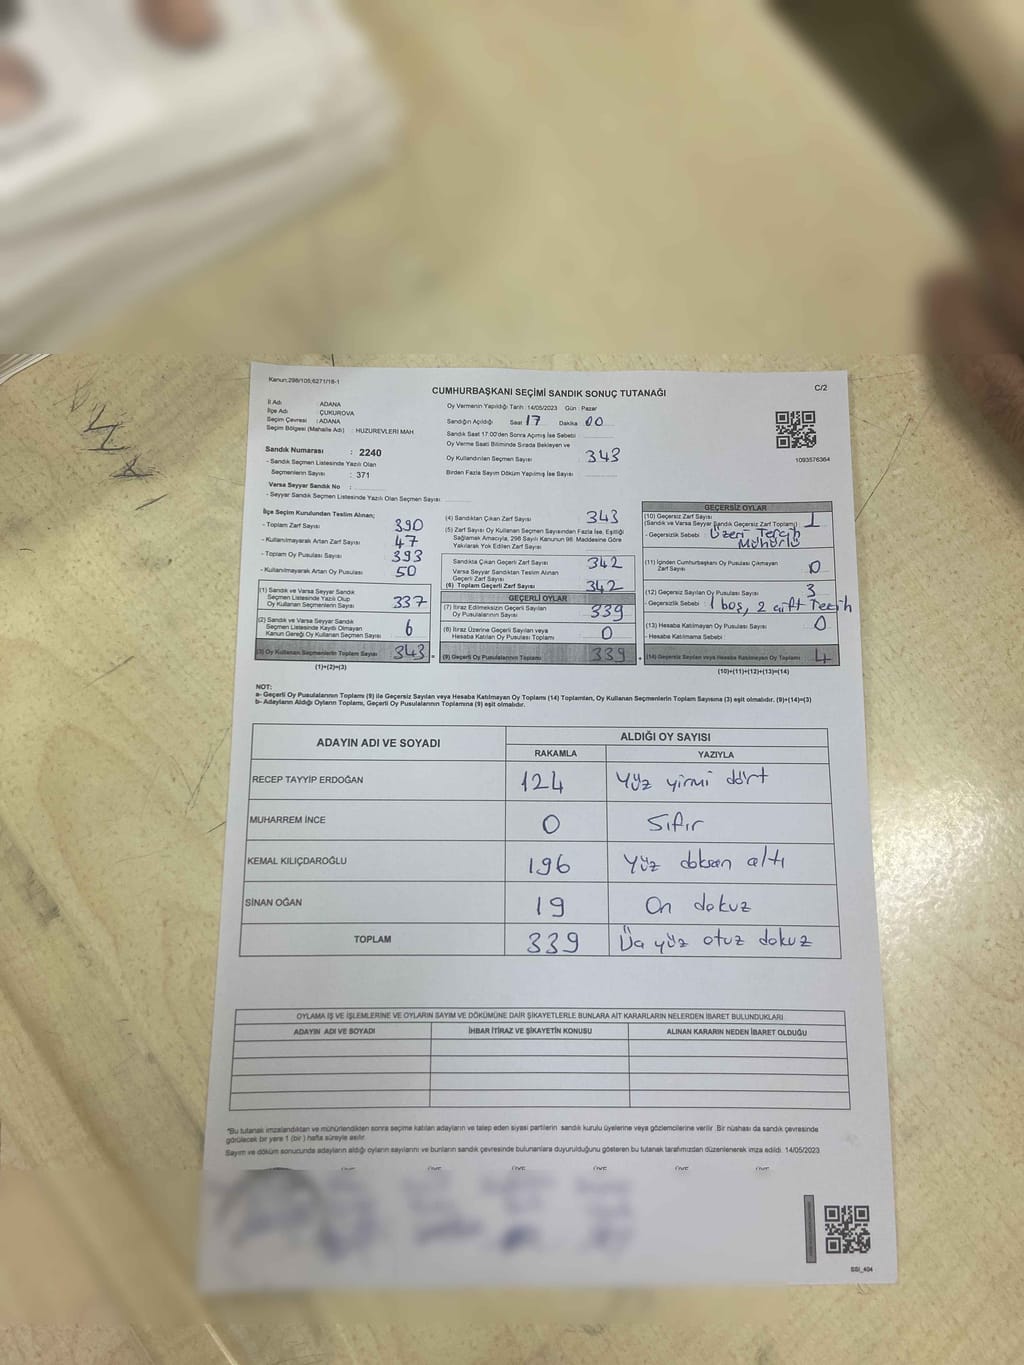 Kanun:298/105;6271/18-1
C/2
CUMHURBAŞKANI SEÇİMİ SANDIK SONUÇ TUTANAĞI
İl Adı : ADANA
İlçe Adı : ÇUKUROVA
Seçim Çevresi : ADANA
Seçim Bölgesi (Mahalle Adı) : HUZUREVLERİ MAH
Sandık Numarası : 2240
- Sandık Seçmen Listesinde Yazılı Olan
Seçmenlerin Sayısı : 371
Varsa Seyyar Sandık No :
- Seyyar Sandık Seçmen Listesinde Yazılı Olan Seçmen Sayısı
Oy Vermenin Yapıldığı Tarih :14/05/2023 Gün : Pazar
Sandığın Açıldığı Saat 17 Dakika 00
Sandık Saat 17:00'den Sonra Açmış İse Sebebi
Oy Verme Saati Bitiminde Sırada Bekleyen ve
Oy Kullandırılan Seçmen Sayısı : 343
Birden Fazla Sayım Döküm Yapılmış İse Sayısı
1093576364
İlçe Seçim Kurulundan Teslim Alınan;
- Toplam Zarf Sayısı 390
- Kullanılmayarak Artan Zarf Sayısı 47
- Toplam Oy Pusulası Sayısı 393
- Kullanılmayarak Artan Oy Pusulası 50
(1) Sandık ve Varsa Seyyar Sandık
Seçmen Listesinde Yazılı Olup
Oy Kullanan Seçmenlerin Sayısı 337
(2) Sandık ve Varsa Seyyar Sandık
Seçmen Listesinde Kayıtlı Olmayan
Kanun Gereği Oy Kullanan Seçmen Sayısı 6
(3) Oy Kullanan Seçmenlerin Toplam Sayısı 343 =
(1)+(2)=(3)
(4) Sandıktan Çıkan Zarf Sayısı 343
(5) Zarf Sayısı Oy Kullanan Seçmen Sayısından Fazla İse, Eşitliği
Sağlamak Amacıyla, 298 Sayılı Kanunun 98. Maddesine Göre
Yakılarak Yok Edilen Zarf Sayısı
Sandıkta Çıkan Geçerli Zarf Sayısı 342
Varsa Seyyar Sandıktan Teslim Alınan
Geçerli Zarf Sayısı
(6) Toplam Geçerli Zarf Sayısı 342
GEÇERLİ OYLAR
(7) İtiraz Edilmeksizin Geçerli Sayılan
Oy Pusulalarının Sayısı 339
(8) İtiraz Üzerine Geçerli Sayılan veya
Hesaba Katılan Oy Pusulası Toplamı 0
(9) Geçerli Oy Pusulalarının Toplamı 339 +
GEÇERSİZ OYLAR
(10) Geçersiz Zarf Sayısı
(Sandık ve Varsa Seyyar Sandık Geçersiz Zarf Toplamı) 1
- Geçersizlik Sebebi : Üzeri Tercih
Mühürlü
(11) İçinden Cumhurbaşkanı Oy Pusulası Çıkmayan
Zarf Sayısı 0
(12) Geçersiz Sayılan Oy Pusulası Sayısı 3
- Geçersizlik Sebebi : 1 boş, 2 çift Tercih
(13) Hesaba Katılmayan Oy Pusulası Sayısı 0
- Hesaba Katılmama Sebebi :
(14) Geçersiz Sayılan veya Hesaba Katılmayan Oy Toplamı 4
(10)+(11)+(12)+(13)=(14)
NOT:
a- Geçerli Oy Pusulalarının Toplamı (9) ile Geçersiz Sayılan veya Hesaba Katılmayan Oy Toplamı (14) Toplamları, Oy Kullanan Seçmenlerin Toplam Sayısına (3) eşit olmalıdır. (9)+(14)=(3)
b- Adayların Aldığı Oyların Toplamı, Geçerli Oy Pusulalarının Toplamına (9) eşit olmalıdır.
ADAYIN ADI VE SOYADI
ALDIĞI OY SAYISI
RAKAMLA YAZIYLA
RECEP TAYYİP ERDOĞAN 124 Yüz yirmi dört
MUHARREM İNCE 0 Sıfır
KEMAL KILIÇDAROĞLU 196 Yüz doksan altı
SİNAN OĞAN 19 On dokuz
TOPLAM 339 Üç yüz otuz dokuz
OYLAMA İŞ VE İŞLEMLERİNE VE OYLARIN SAYIM VE DÖKÜMÜNE DAİR ŞİKAYETLERLE BUNLARA AİT KARARLARIN NELERDEN İBARET BULUNDUKLARI
ADAYIN ADI VE SOYADI İHBAR İTİRAZ VE ŞİKAYETİN KONUSU ALINAN KARARIN NEDEN İBARET OLDUĞU
*Bu tutanak imzalandıktan ve mühürlendikten sonra seçime katılan adayların ve talep eden siyasi partilerin sandık kurulu üyelerine veya gözlemcilerine verilir. Bir nüshası da sandık çevresinde
görülecek bir yere 1 (bir) hafta süreyle asılır.
Sayım ve döküm sonucunda adayların aldığı oyların sayılarını ve bunların sandık çevresinde bulunanlara duyurulduğunu gösteren bu tutanak tarafımızdan düzenlenerek imza edildi. 14/05/2023
SSI_404